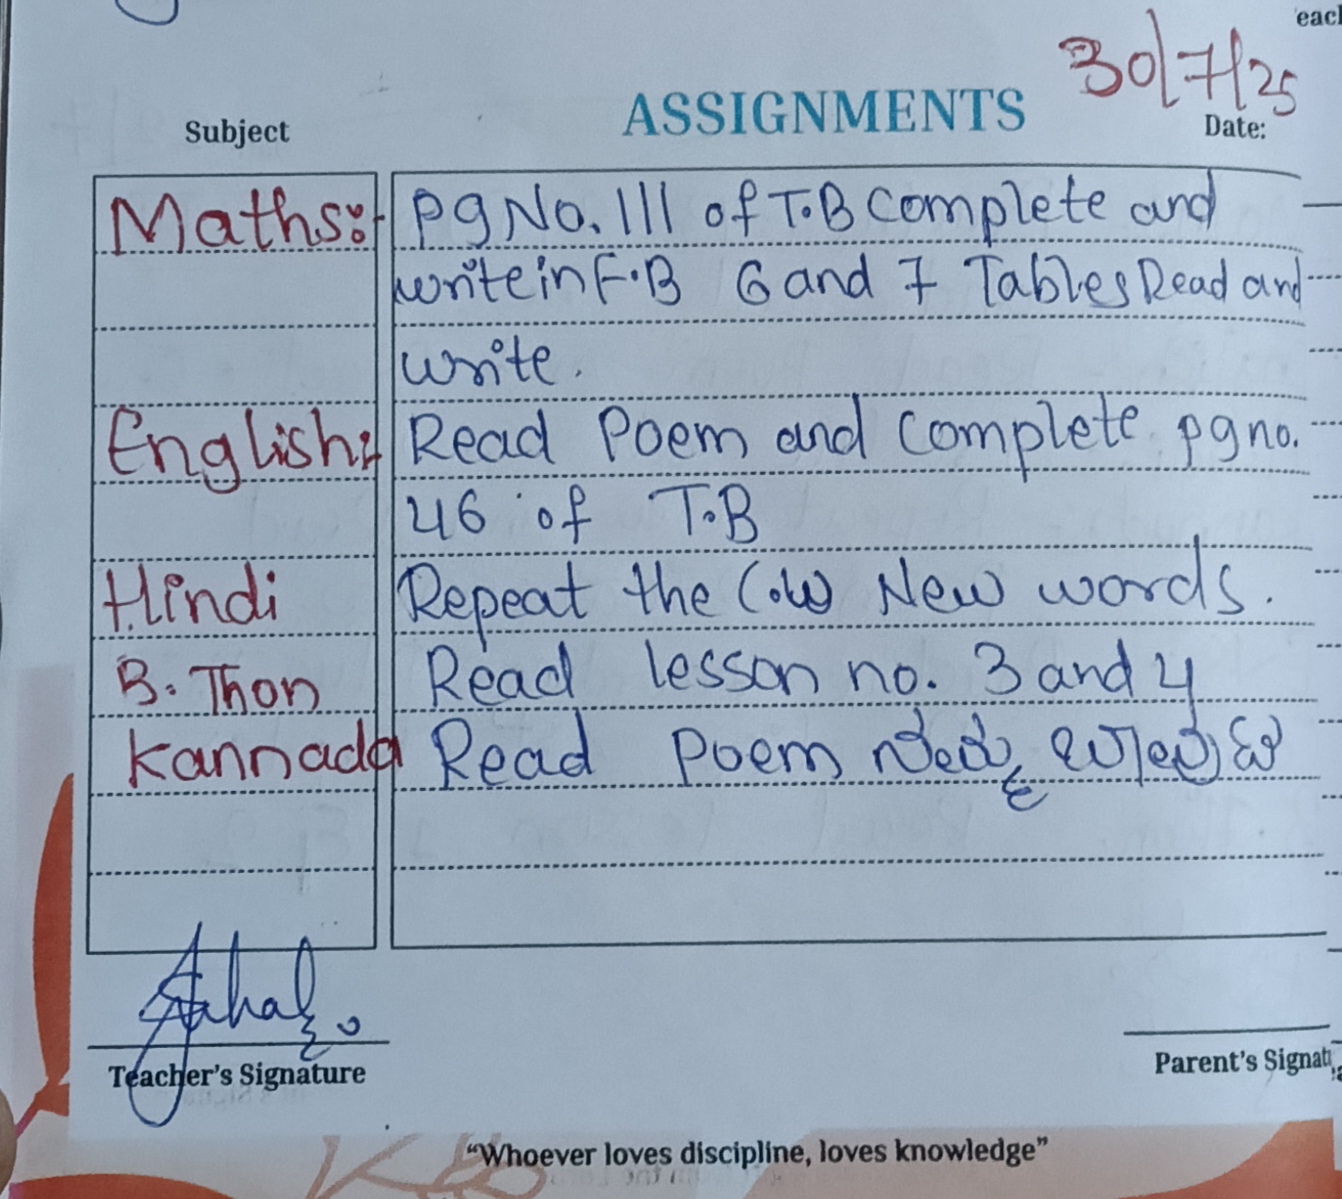 eac
30/7/25
ASSIGNMENTS
Subject
Date:
Maths:- Pg No. 111 of T.B Complete and
write in F.B 6 and 7 Tables Read and
write.
English:- Read Poem and Complete pg no.
46 of T.B
Hindi Repeat the C.W New words.
B. Thon Read lesson no. 3 and 4
Kannada Read Poem
Teacher's Signature
Parent's Signat
“Whoever loves discipline, loves knowledge”